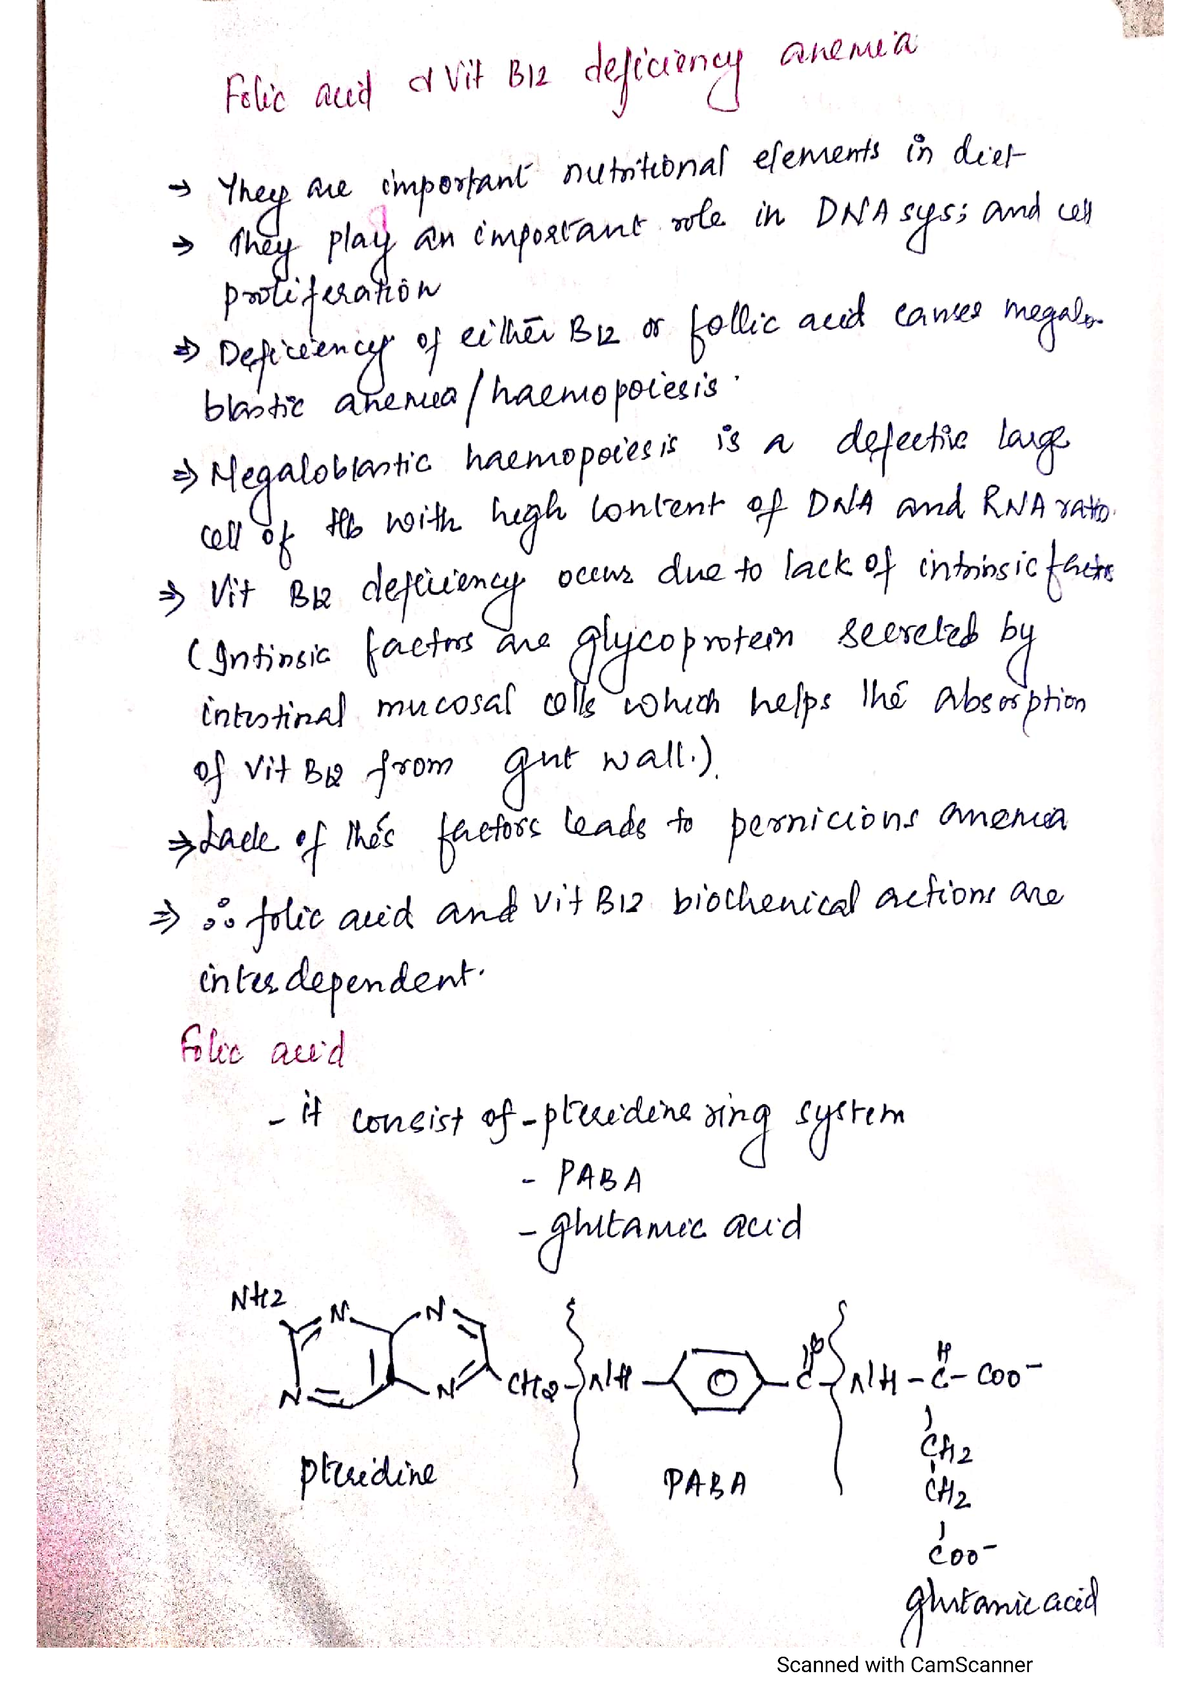 Folic acid & Vit B12 deficiency anemia
→ They are important nutritional elements in diet
→ They play an important role in DNA sys; and cell
proliferation
⇒ Deficiency of either B12 or follic acid causes megalo-
blastic anemia / haemopoiesis.
⇒ Megaloblastic haemopoiesis is a defective large
cell of Hb with high content of DNA and RNA ratio.
⇒ Vit B12 deficiency occurs due to lack of intrinsic factors
(Intinsic factors are glycoprotein secreted by
intestinal mucosal cells which helps the absorption
of Vit B12 from gut wall.).
⇒ Lack of this factors leads to pernicious anemia
⇒ ∴ folic acid and Vit B12 biochemical actions are
interdependent.
Folic acid
- it consist of - pteridine ring system
- PABA
- glutamic acid
NH2 N N H
N N CH2 NH C O NH - C - COO-
CH2
pteridine PABA CH2
COO-
glutamic acid
Scanned with CamScanner